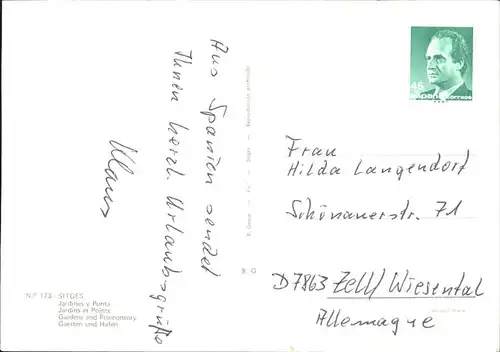 Aus Spanien sendet
Ihnen herzl. Urlaubsgrüße
Klaus
46
España correos
Frau
Hilda Langendorf
Schönauerstr. 71
D7863 Zell/Wiesental
Allemagne
N.º 173 - SITGES
Jardines y Punta
Jardins et Pointe
Gardens and Promontory
Gaerten und Hafen
X G